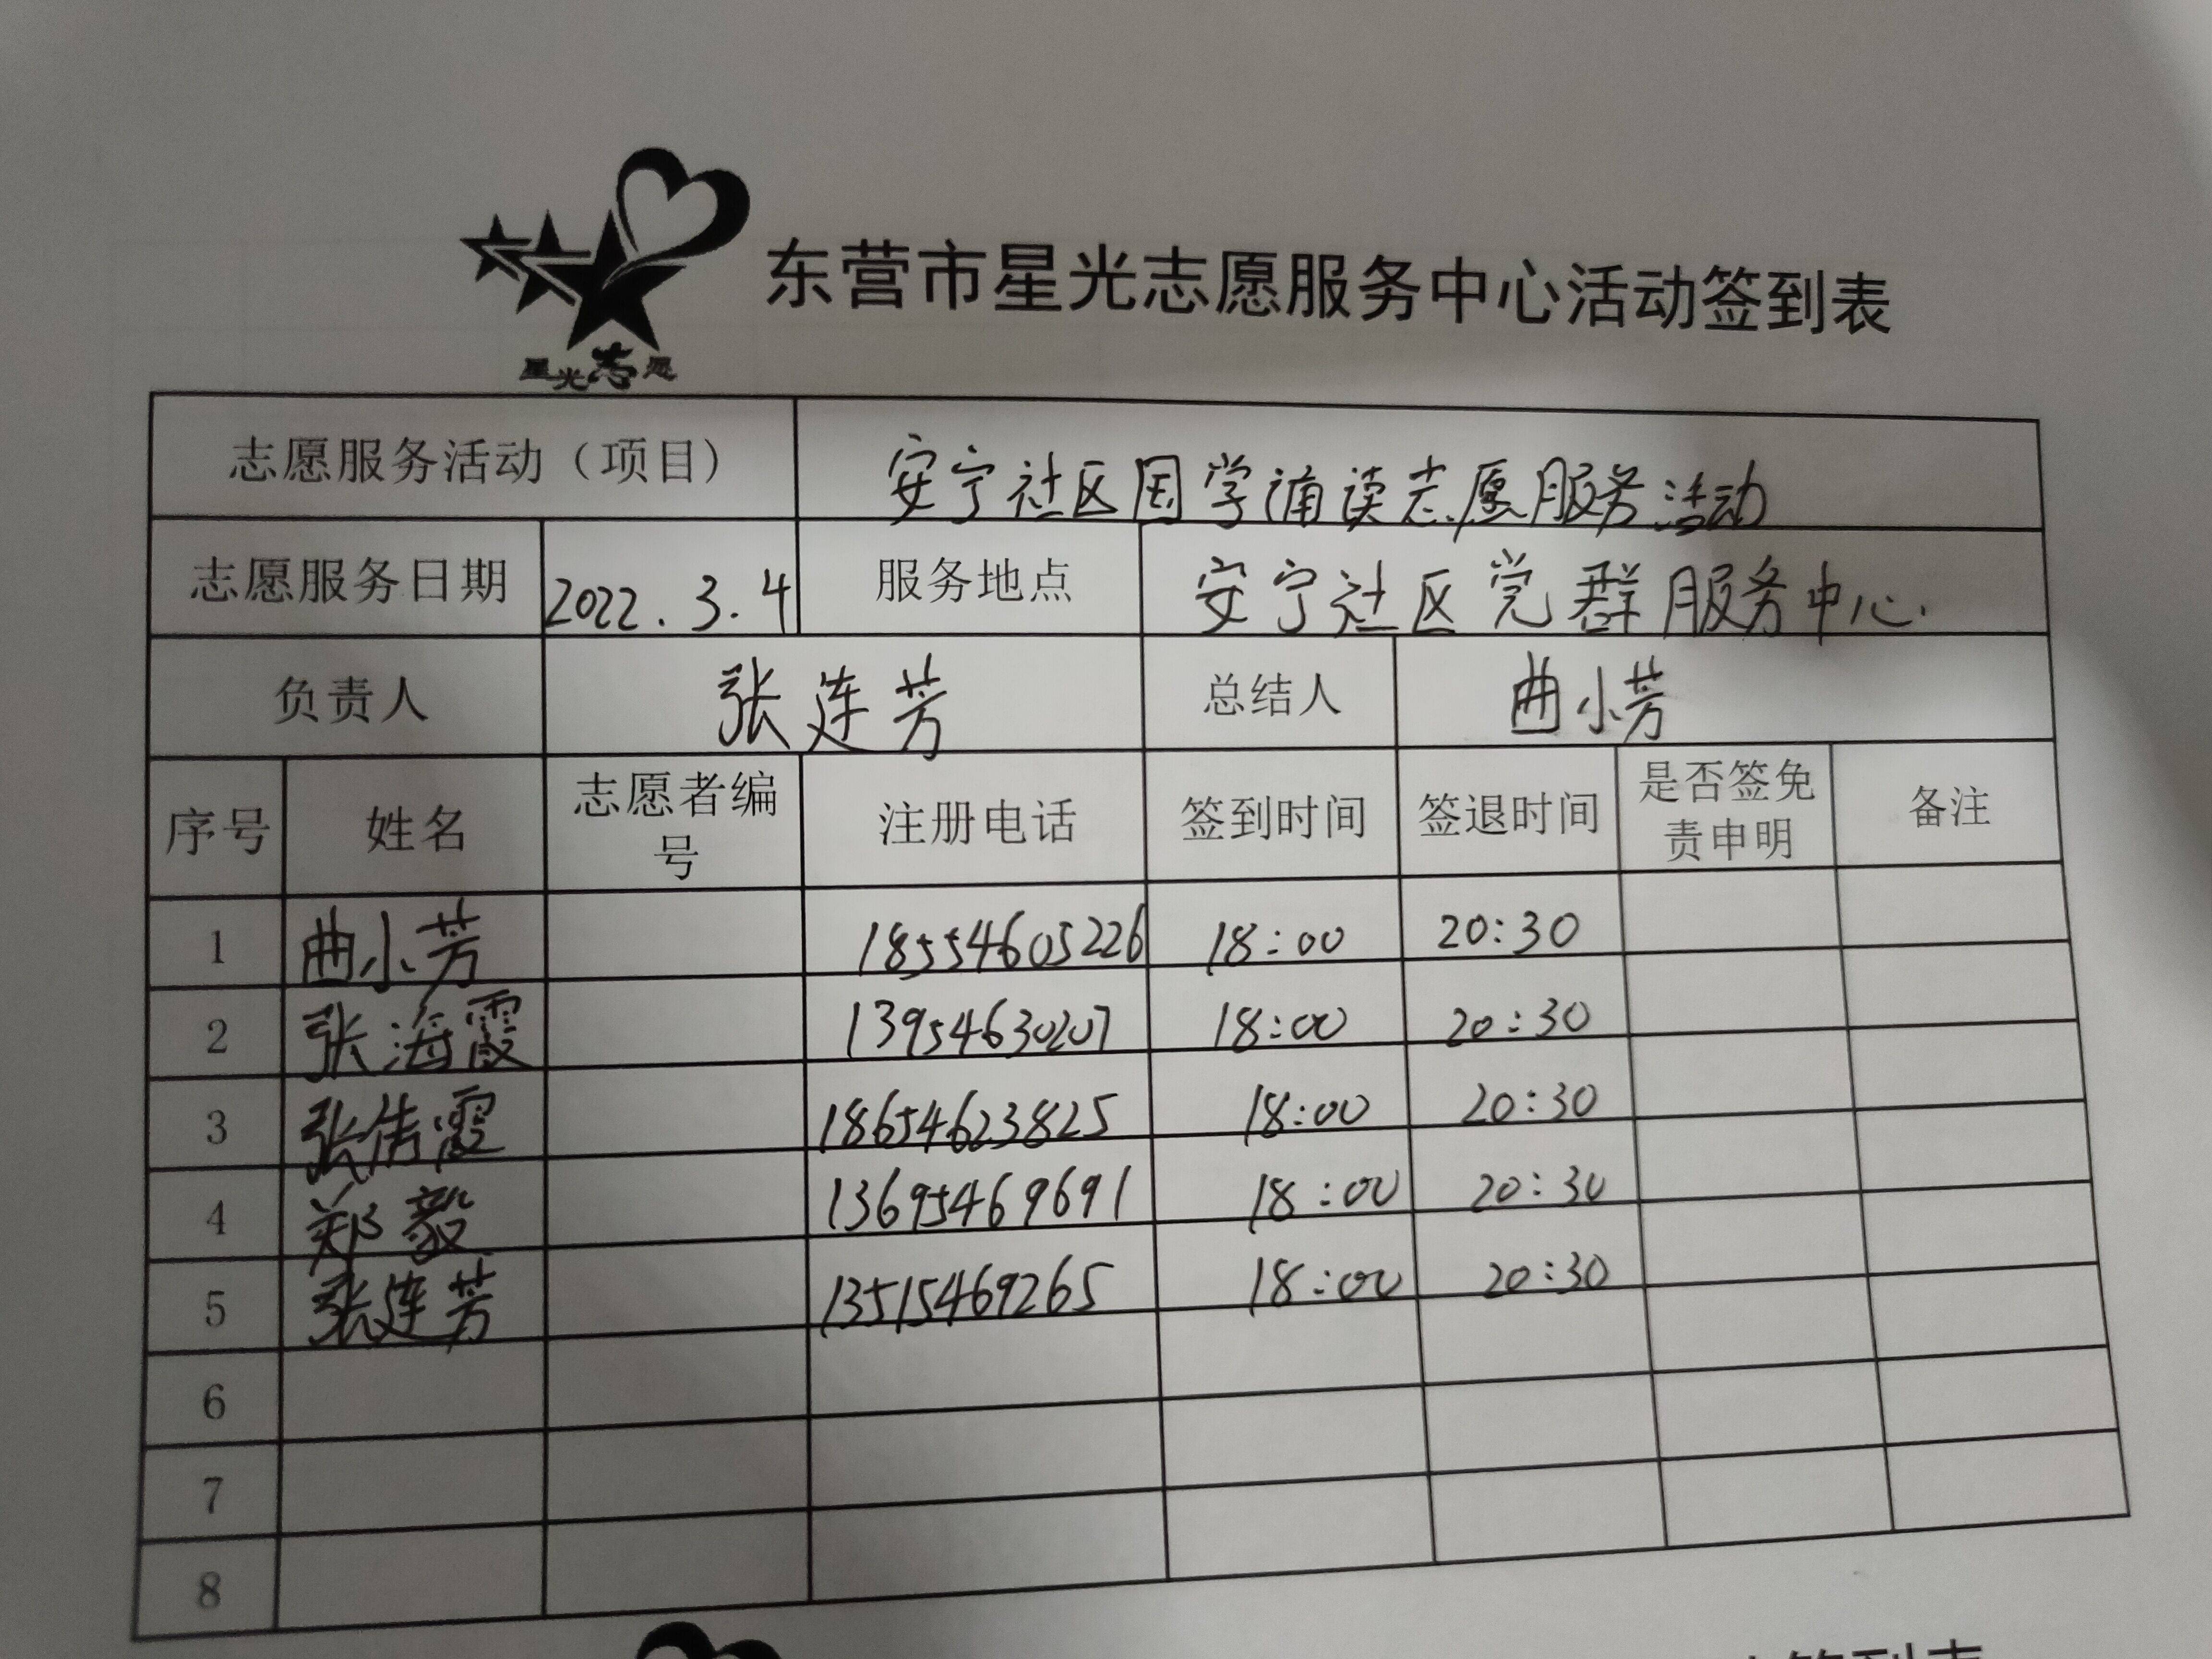 东营市星光志愿服务中心活动签到表
星光志愿
志愿服务活动（项目） 安宁社区国学诵读志愿服务活动
志愿服务日期 2022.3.4 服务地点 安宁社区党群服务中心.
负责人 张连芳 总结人 曲小芳
序号 姓名 志愿者编号 注册电话 签到时间 签退时间 是否签免责申明 备注
1 曲小芳 18554605226 18:00 20:30
2 张海霞 13954630207 18:00 20:30
3 张倩霞 18654623825 18:00 20:30
4 郑毅 13695469691 18:00 20:30
5 张连芳 13515469265 18:00 20:30
6
7
8
签到表